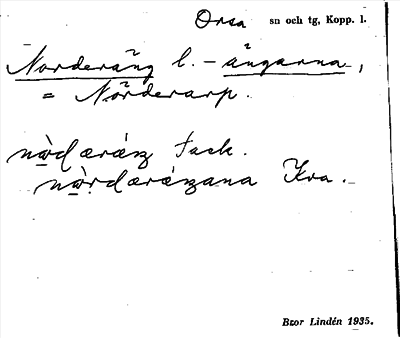 Orsa sn och tg, Kopp. l.
Norderäng l. -ängarna,
= Nörderarp.
nòrdæráŋ Jack.
nòrdæráŋana Kra.
Bror Lindén 1935.